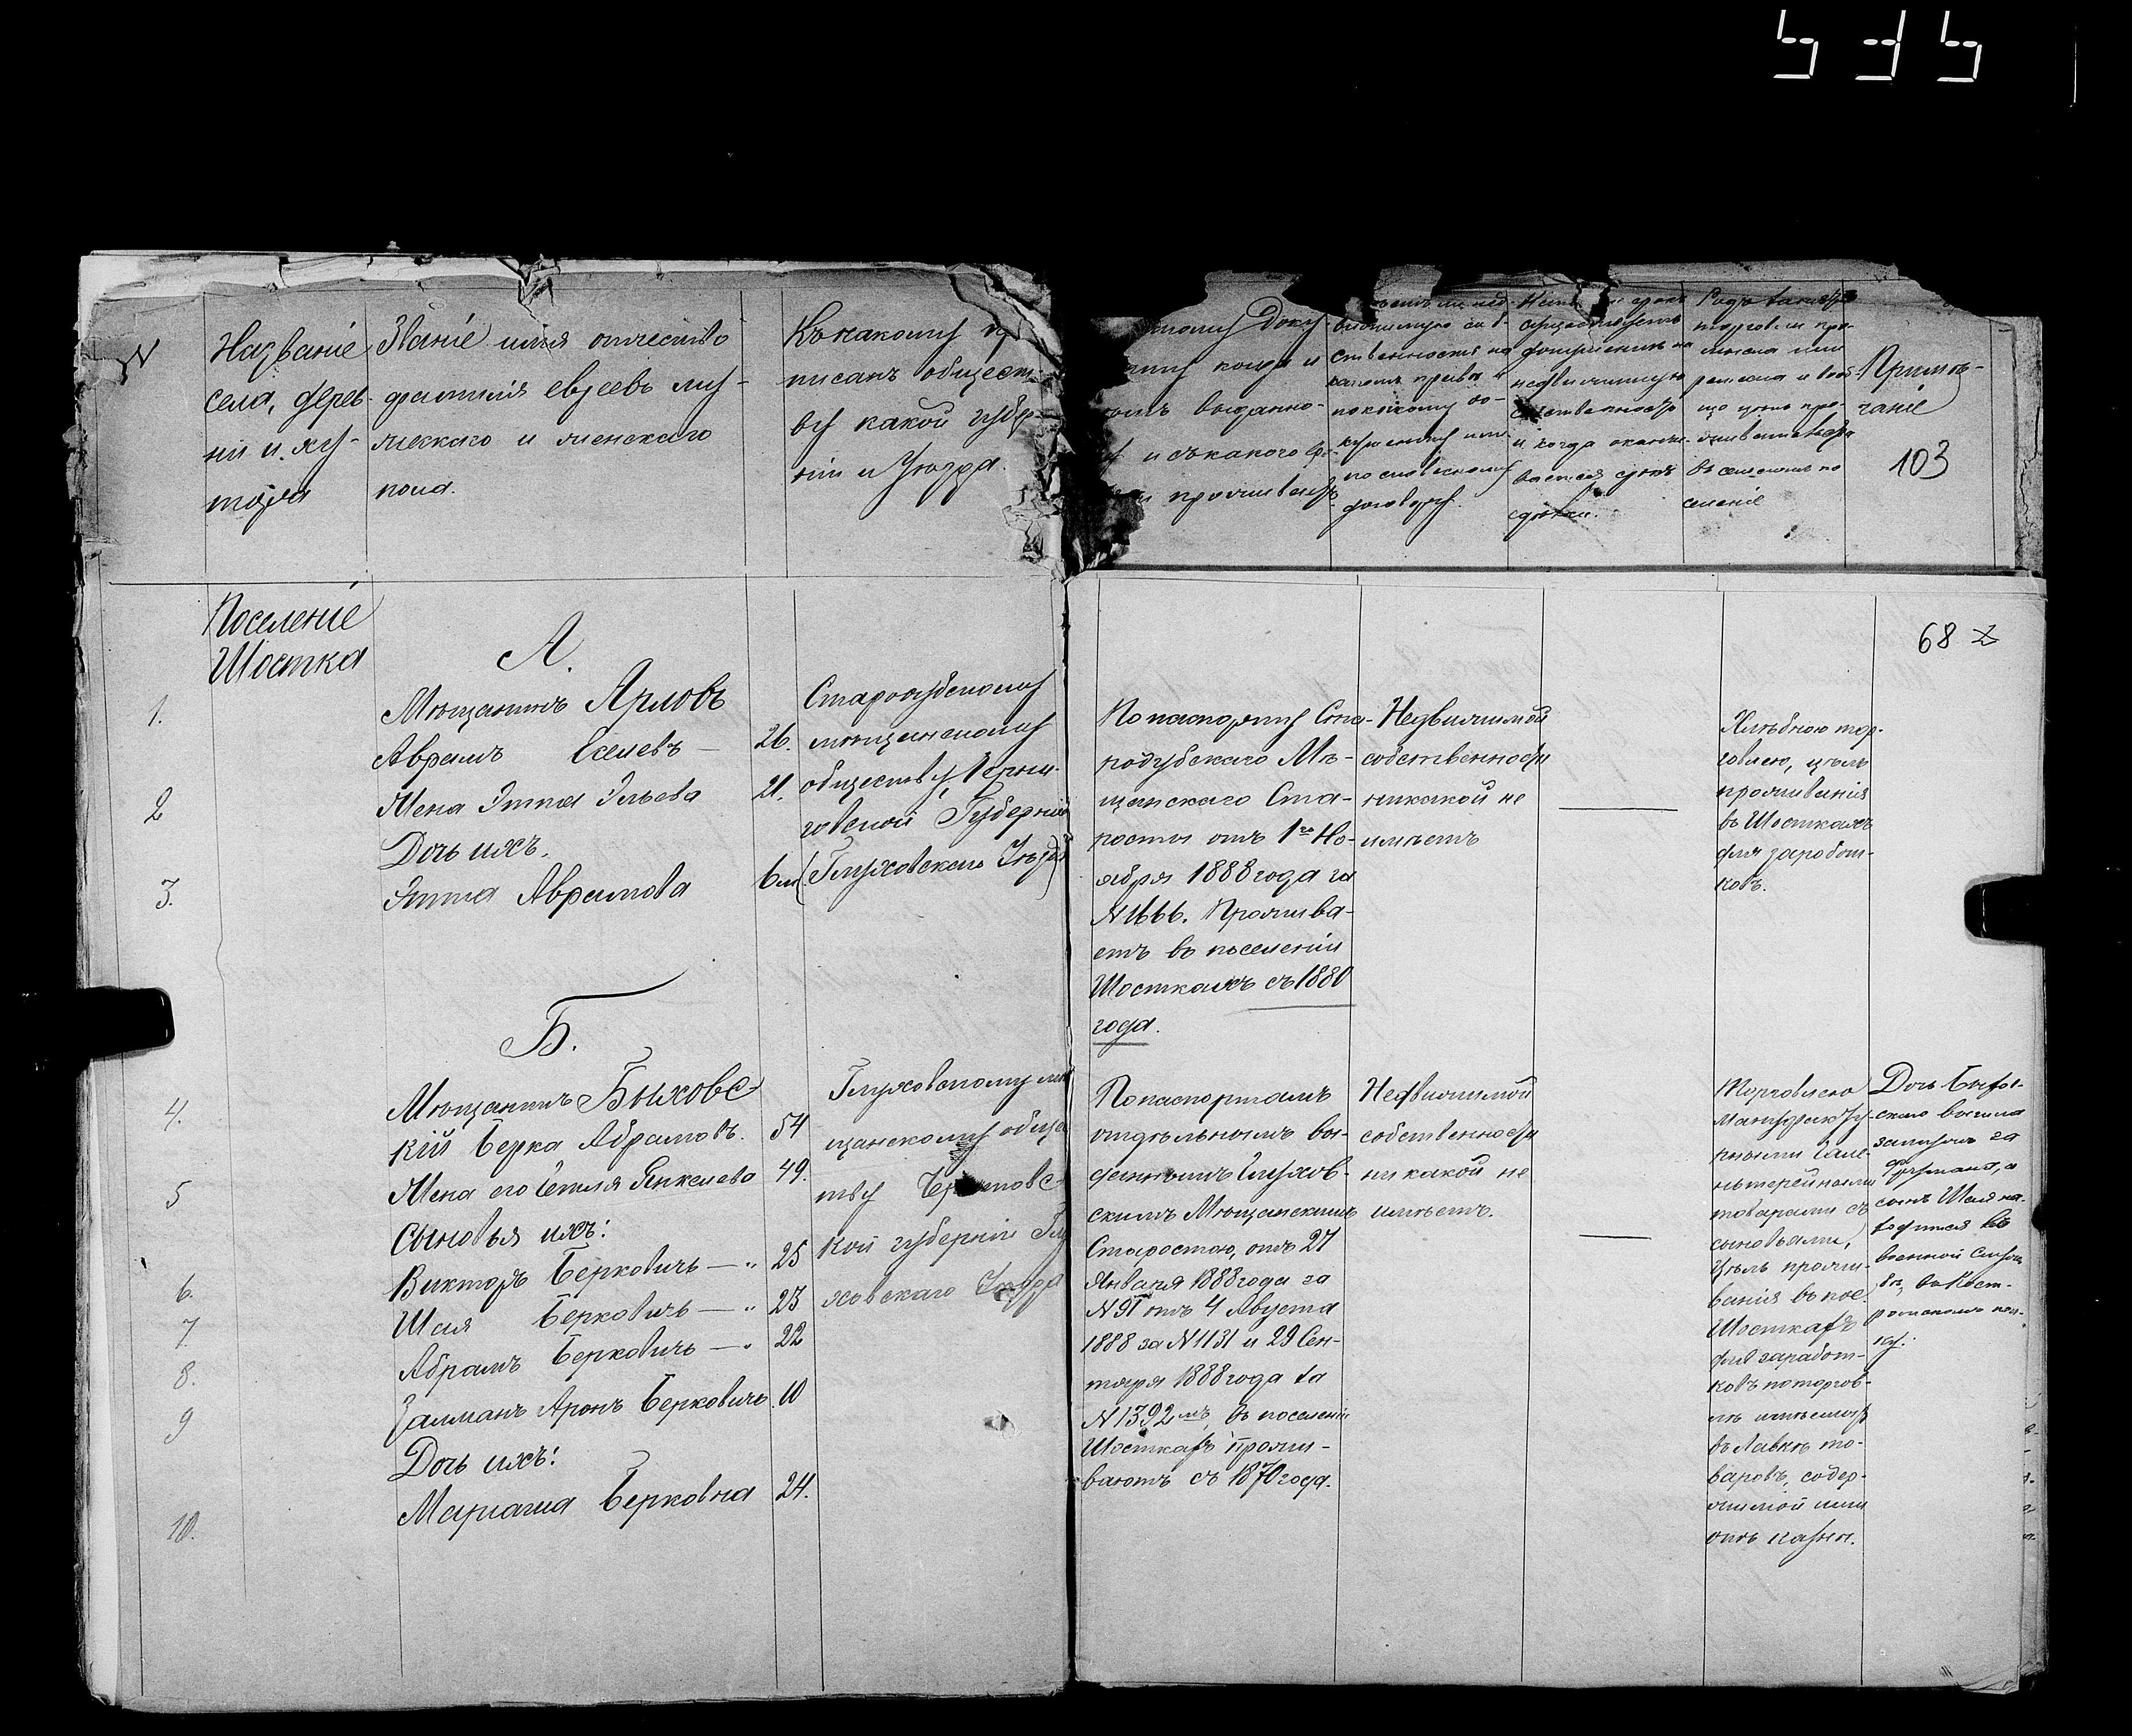 535
N
Названіе
села, дерев-
ни и ху-
тора
Званіе имя отчество
фамилія евреевъ му-
жескаго и женскаго
пола.
Къ какому
писанъ общест-
ву какой губер-
ніи и Уезда.
Доку-
когда и
выданно-
и съ какого
проживаетъ
ственность на
какомъ правѣ и
по какому до-
кументу или
по словесному
договору.
и когда оканчи-
вается срокъ
Родъ занятія
торговли про-
мысла или
ремесла и вооб-
ще цѣль про-
живательства
въ семъ по
селеніе
Примѣ-
чаніе
103
68
Поселеніе
Шостка
А.
1.
Мѣщанинъ Арловъ
Аврамъ Еселевъ — 26.
2
Жена Эття Эльева 21.
Дочь ихъ.
3.
Этта Аврамова 6 м
Стародубскому
мѣщанскому
обществу Черни-
говской Губерніи
(Глуховскаго Уѣзда)
По паспорту Ста-
родубскаго Мѣ-
щанскаго Ста-
росты отъ 1го Но-
ября 1888 года за
N 1666. Прожива-
етъ въ поселеніи
Шосткахъ съ 1880
года.
Недвижимой
собственности
никакой не
имѣетъ
Хлѣбною тор-
говлею, цѣль
проживанія
въ Шосткахъ
для заработ-
ковъ.
Б.
4.
Мѣщанинъ Быховс-
кій Берка Абрамовъ. 54
5
Жена его Гетля Янкелева 49.
Сыновья ихъ:
6.
Викторъ Берковичъ — " 25
7.
Шая Берковичъ — " 23
8.
Абрамъ Берковичъ — " 22
9
Залманъ Аронъ Берковичъ. 10
Дочь ихъ:
10.
Маріаша Берковна 24.
Глуховскому мѣ
щанскому общес
тву Черниговс-
кой губерніи Глу
ховскаго Уезда
По паспортамъ
отдѣльнымъ вы-
даннымъ Глухов-
скимъ Мѣщанскимъ
Старостою, отъ 27
Января 1888 года за
N 91 отъ 4 Августа
1888 за N 1131 и 29 Сен-
тября 1888 года за
N 1392мъ, въ поселеніи
Шосткахъ прожи-
ваютъ съ 1870 года.
Недвижимой
собственности
никакой не
имѣетъ.
Торговлею
Мануфакту-
рными Гала-
нтерейными
товарами съ
сыновьями,
Цѣль прожи-
ванія въ пос.
Шосткахъ
для заработ-
ковъ по торгов-
лѣ имѣемыхъ
въ Лавкѣ то-
варовъ, содер-
жимой ими
отъ казны.
Дочь Быхов-
скаго вышла
замужъ за
Фурмана, а
сынъ Шая на-
ходится въ
военной Служ
бѣ, въ Кост-
ромскомъ пол-
ку.